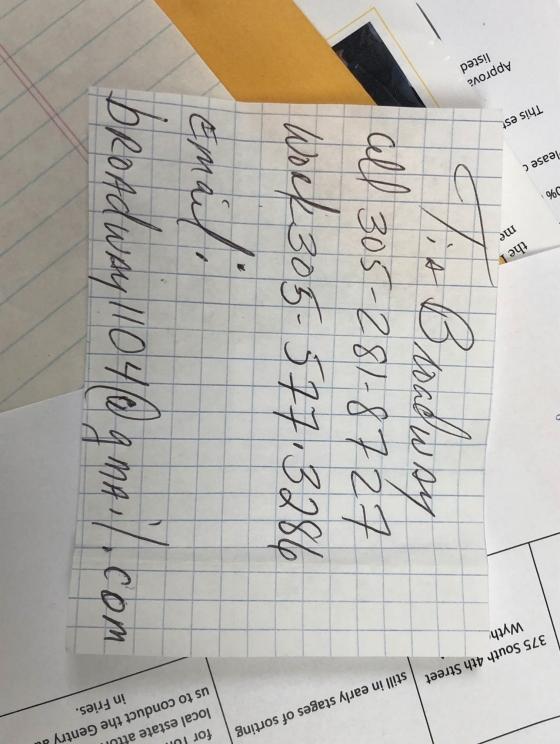 Tia Broadway
cell 305-281-8727
work 305-577-3286
email:
broadway1104@gmail.com
Approva
listed
This est
lease c
0%
the
me
375 South 4th Street
Wyth
still in early stages of sorting
local estate atto
us to conduct the Gentry a
in Fries.